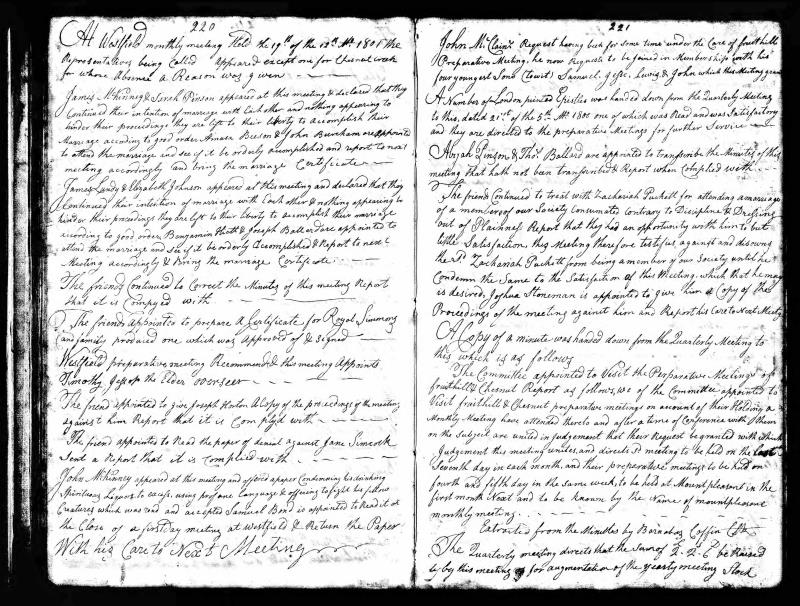 220
At Westfield monthly meeting Held the 19th of the 12th Mo 1801 The
Representatives being Called appeared except one for Chesnut creek
for whose absence a Reason was given
James McKinney & Sarah Pinson appeared at this meeting & declared that they
Continued their intention of marriage with Each other and nothing appearing to
hinder their proceedings they are left to their liberty to accomplish their
Marriage according to good order Amasa Beeson & John Burnham are appointed
to attend the marriage and see if it be orderly accomplished and report to next
meeting accordingly and bring the marriage Certificate
James Lundy & Elizabeth Johnson appeared at this meeting and declared that they
Continued their intention of marriage with Each other & nothing appearing to
hinder their procedings they are left to their liberty to accomplish their marriage
according to good order, Benjamin Hiatt & Joseph Ballard are appointed to
attend the marriage and see if it be orderly accomplished & Report to next
Meeting accordingly & Bring the marriage Certificate
The friends continued to Correct the Minutes of this meeting Report
that it is Complyed with
The friends appointed to prepare a Certificate for Royal Simmons
and family produced one which was approved of & Signed
Westfield preparative meeting Recommended & this meeting appoints
Timothy Jessop the Elder overseer
The friend appointed to give Joseph Horton a Copy of the proceedings of the meeting
against him Report that it is Complyd with
The friend appointed to Read the paper of denial against Jane Simcock
Sent a Report that it is Complied with
John McKinney appeared at this meeting and offered a paper Condemning his drinking
Spirituous Liquors to excess, using profane Language & offering to fight his fellow
Creatures which was read and accepted Samuel Bond is appointed to Read it at
the Close of a first day meeting at Westfield & Return the Paper
With his Care to Next Meeting
221
John McClain Request having been for some time under the Care of fruithill
Preparative Meeting, he now Requests to be joined in Membership with his
four youngest Sons (towit) Samuel, Jesse, Lewis, & John which this Meeting grants
A Number of London printed Epistles was handed down from the Quarterly Meeting
to this, dated 21st of the 5th Mo 1801 one of which was Read and was Satisfactory
and they are directed to the preparative Meetings for further Service
Abijah Pinson & Thos Ballard are appointed to transcribe the Minutes of this
meeting that hath not been transcribed & Report when Complied with
The friend Continued to treat with Zachariah Puckett for attending a marriage
of a member of our Society Consumated Contrary to Discipline & Dressing
out of Plainness Report that they had an opportunity with him to but
little Satisfaction, this Meeting therefore testifies against and disowns
the sd Zachariah Puckett from being a member of our Society until he
Condemn the Same to the Satisfaction of this Meeting, which that he may
is desired, Joshua Stoneman is appointed to give him a Copy of the
Proceedings of the meeting against him and Report his Care to Next Meeting
A Copy of a minute was handed down from the Quarterly Meeting to
this which is as follows
The Committee appointed to Visit the Perparative Meetings of
fruithill & Chesnut Report as follows, we of the Committee appointed to
Visit fruithill & Chesnut preparative meetings on account of their Holding a
Monthly Meeting have attended thereto and after a time of Conference with them
on the Subject are united in Judgement that their Request be granted with which
Judgement this meeting unites, and directs sd meeting to be held on the last
Seventh day in each month, and their preparative meetings to be held on
fourth and fifth day in the same week, to be held at Mountpleasant in the
first month Next and to be known by the Name of mountpleasant
monthly meeting
Extracted from the Minutes by Barnabas Coffin Clk
The Quarterly meeting directs that the Sum of be Raised
by this meeting for augmentation of the yearly meeting Stock